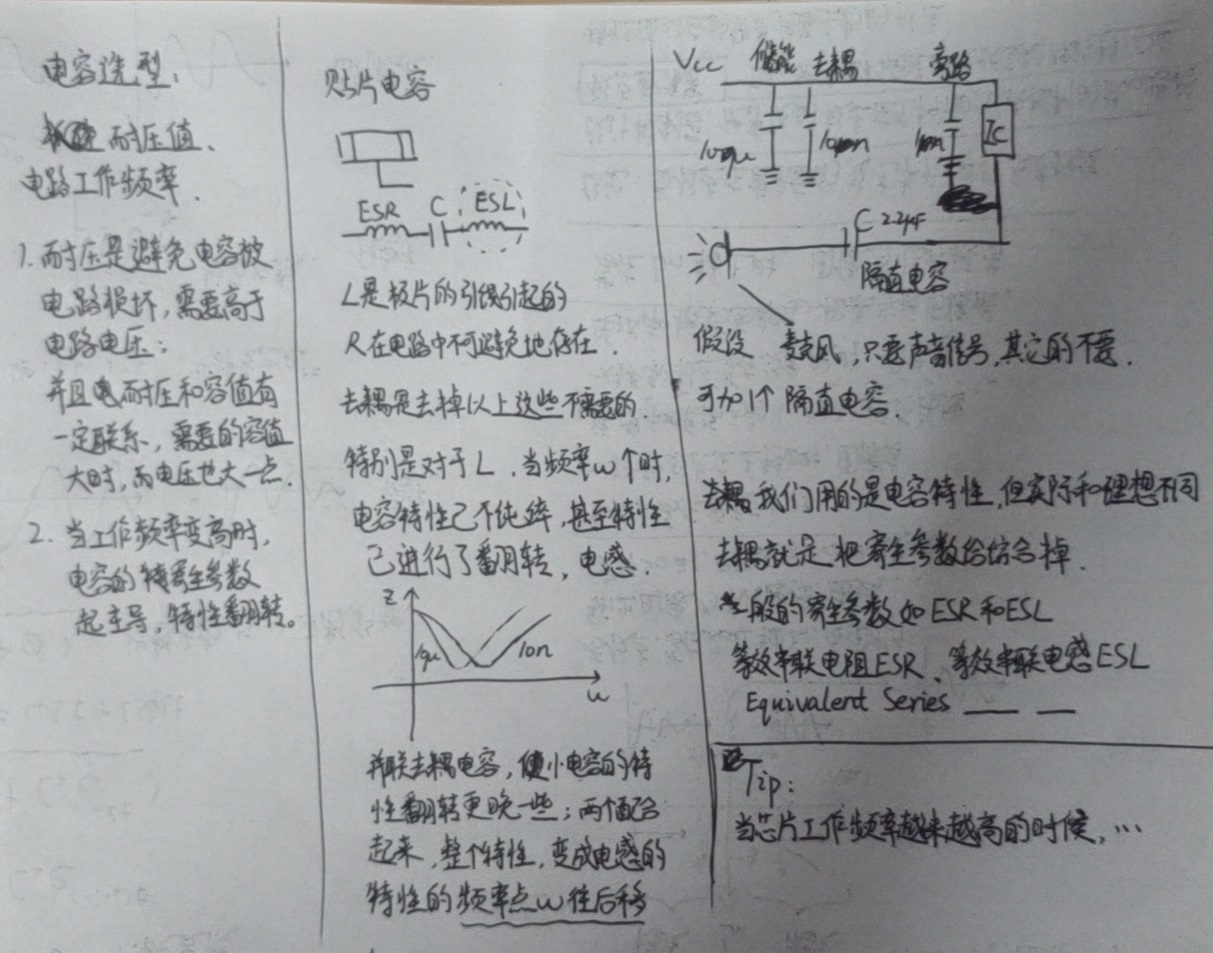 电容选型:
耐压值、
电路工作频率.
1. 耐压是避免电容被
电路损坏，需要高于
电路电压；
并且耐压和容值有
一定联系，需要的容值
大时，耐电压也大一点.
2. 当工作频率变高时，
电容的寄生参数
起主导，特性翻转。
贴片电容
ESR C ESL
L是极片的引线引起的
R在电路中不可避免地存在.
去耦是去掉以上这些不需要的.
特别是对于L，当频率w↑时，
电容特性已不纯粹，甚至特性
已进行了翻转，电感.
Z
10n
w
并联去耦电容，使小电容的特
性翻转更晚一些；两个配合
起来，整个特性，变成电感的
特性的频率点w往后移
Vcc 储能 去耦 旁路
100μ
IC
C 2.2μF
隔直电容
假设 麦克风，只要声音信号，其它的不要.
可加1个隔直电容.
去耦我们用的是电容特性，但实际和理想不同
去耦就是把寄生参数给综合掉.
一般的寄生参数如ESR和ESL
等效串联电阻ESR、等效串联电感ESL
Equivalent Series
Tip:
当芯片工作频率越来越高的时候，…